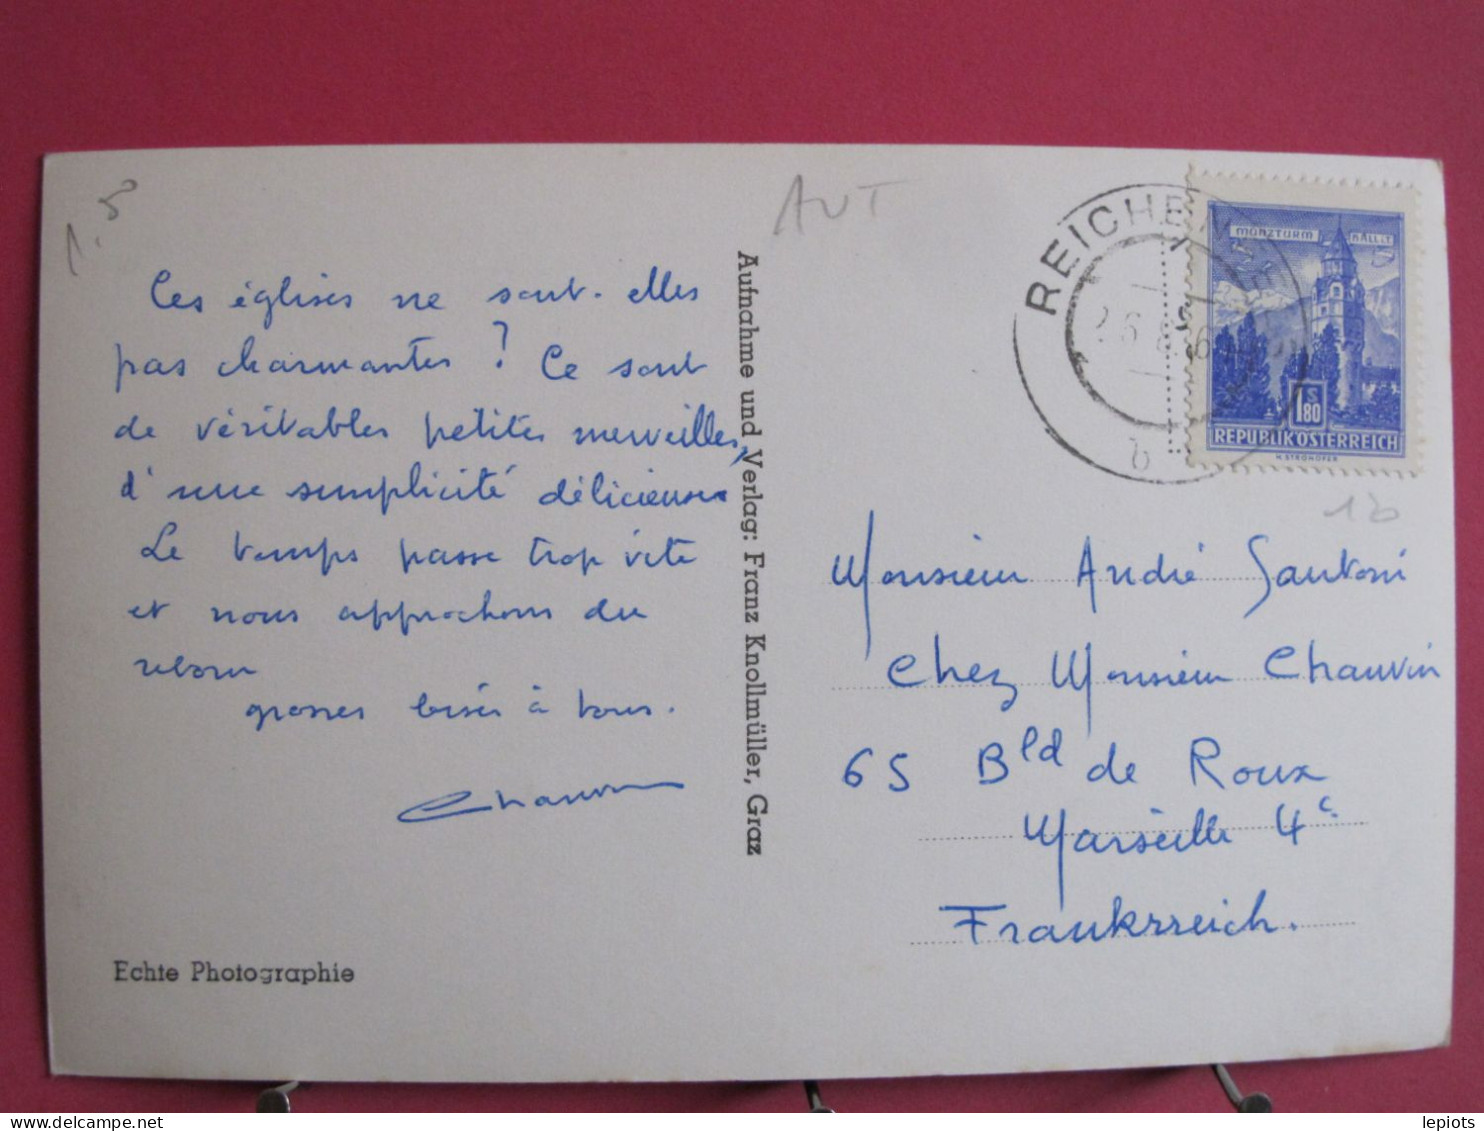 1.5
AUT
Ces églises ne sont-elles
pas charmantes ? Ce sont
de véritables petites merveilles,
d'une simplicité délicieuse
Le temps passe trop vite
et nous approchons du
retour
grosses bises à tous.
Chauvin
Echte Photographie
Aufnahme und Verlag: Franz Knollmüller, Graz
b
MÜNZTURM HALL i.T.
1S80
REPUBLIK ÖSTERREICH
H. STROHOFER
Monsieur André Santoni
chez Monsieur Chauvin
65 Bld de Roux
Marseille 4e
Frankrreich.
lepiots